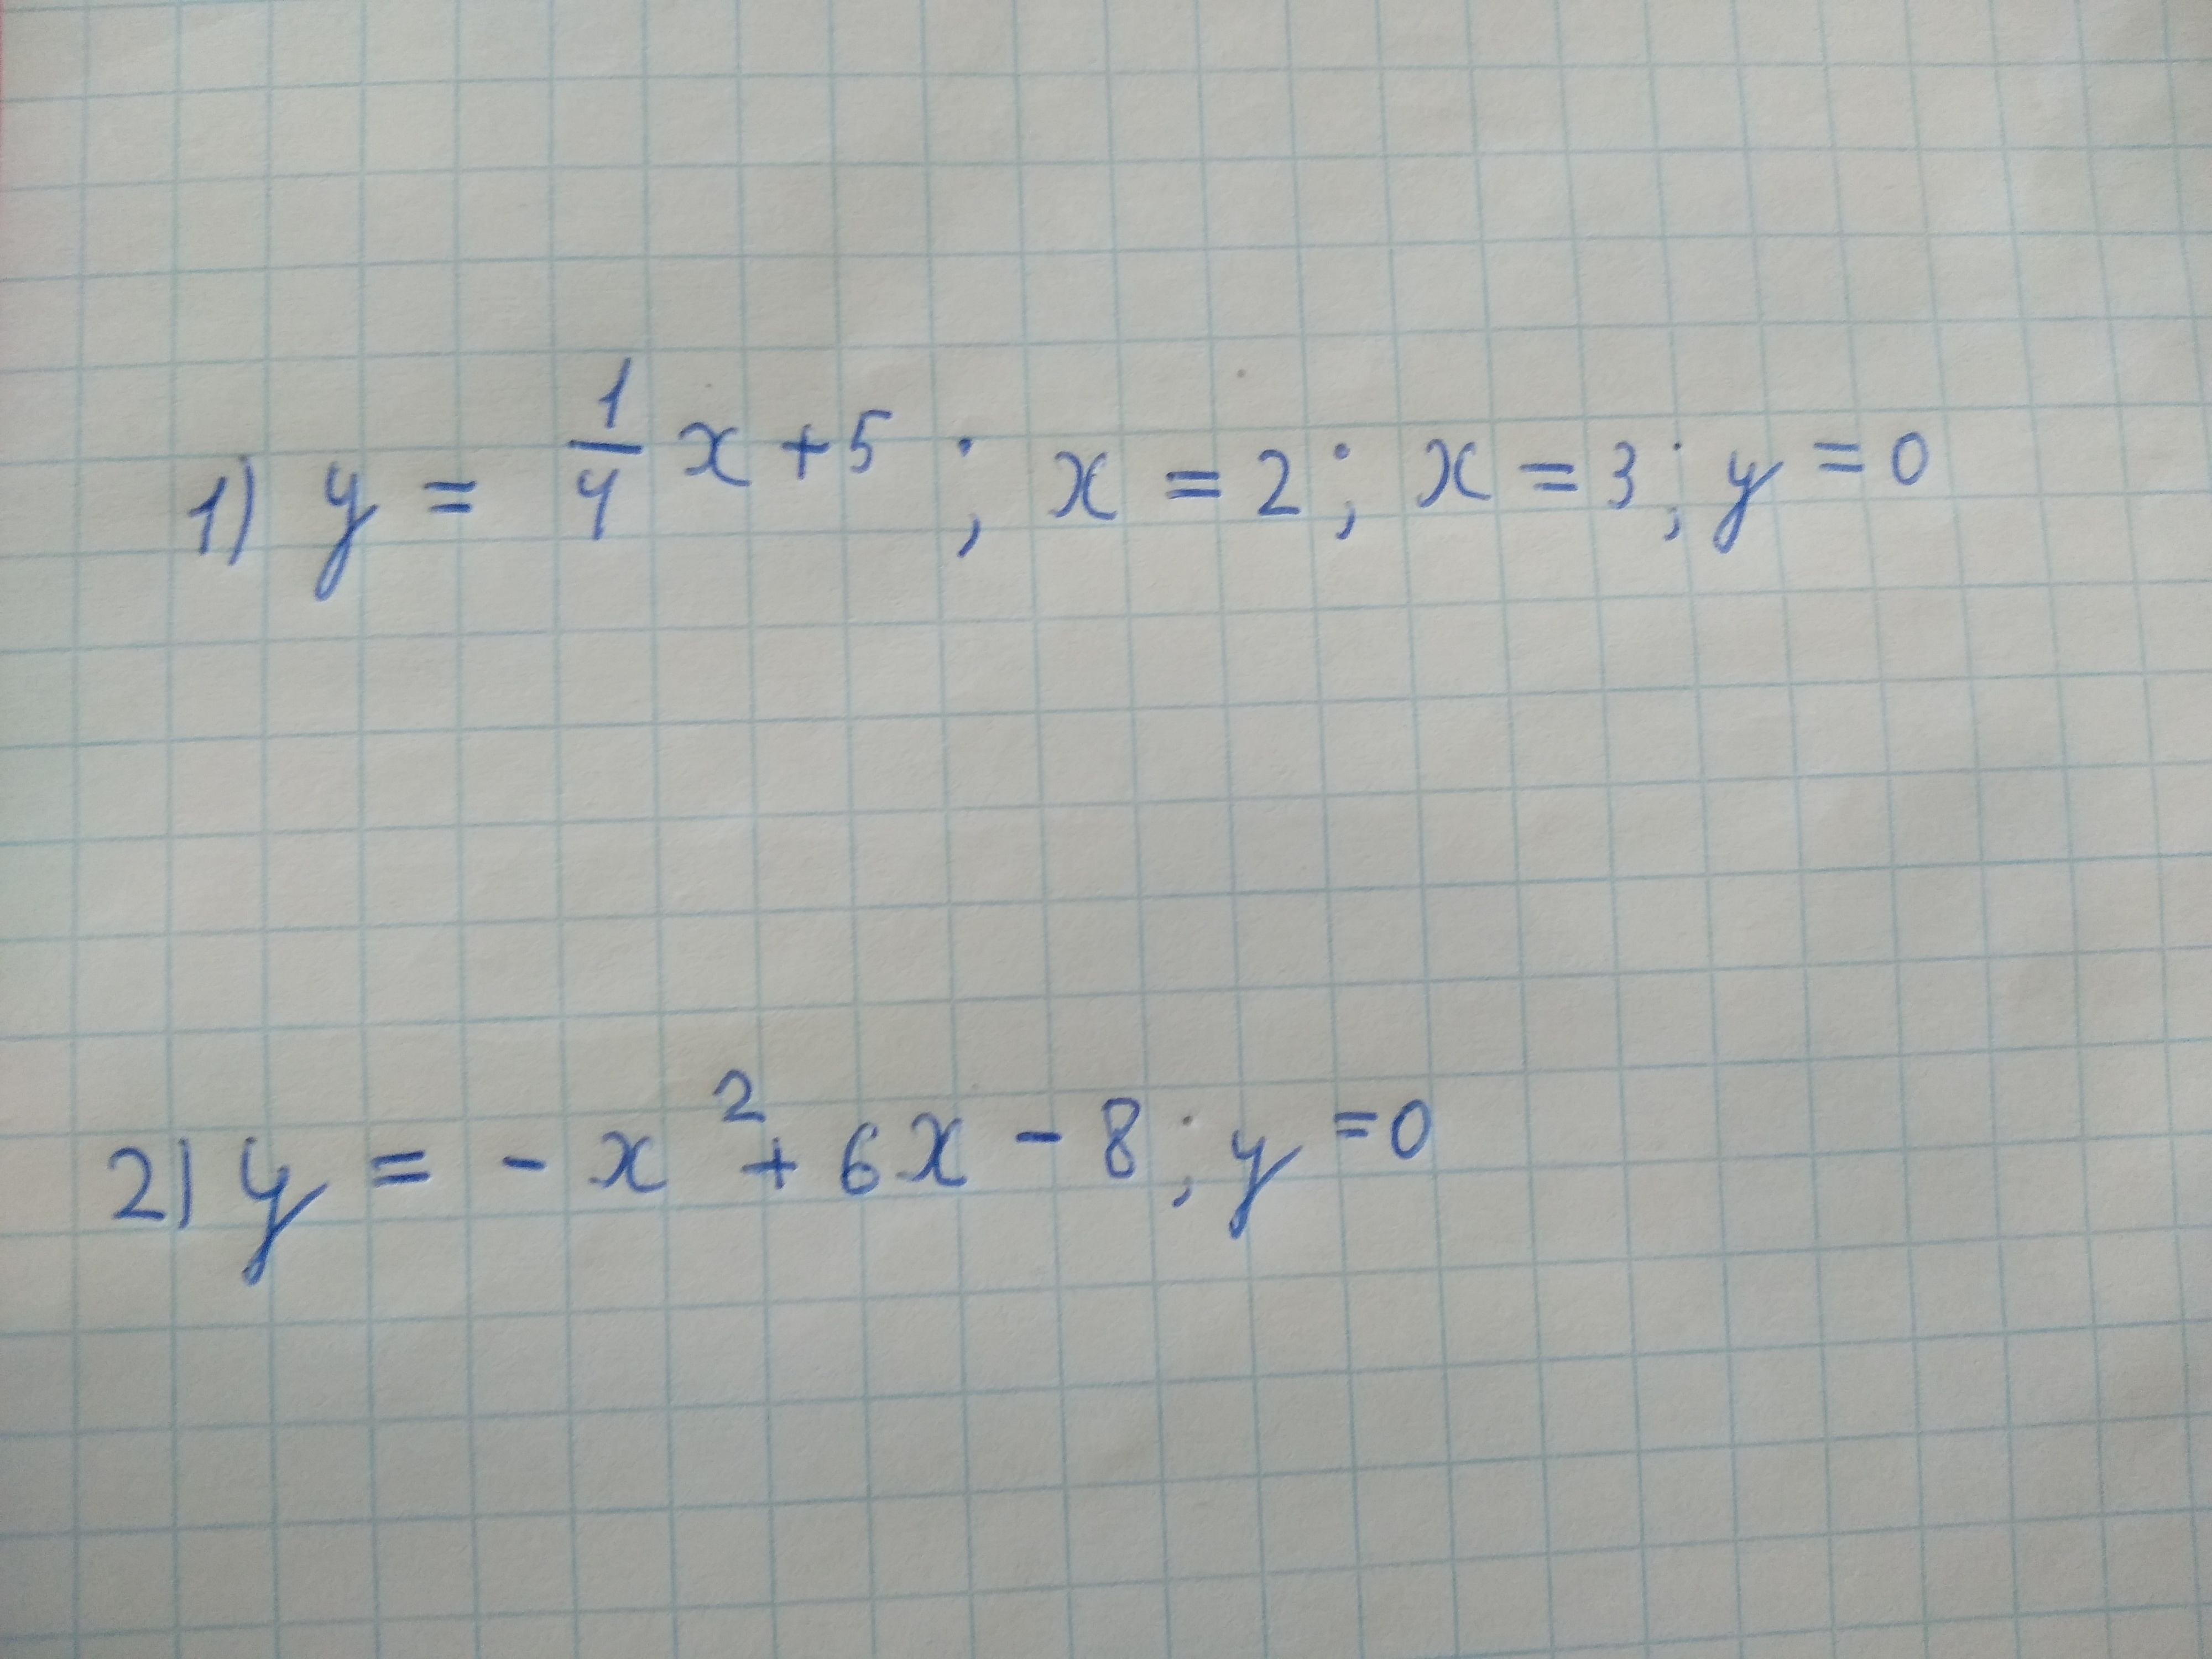 1) y = 1/4 x + 5 ; x = 2; x = 3; y = 0
2) y = - x² + 6x - 8; y = 0